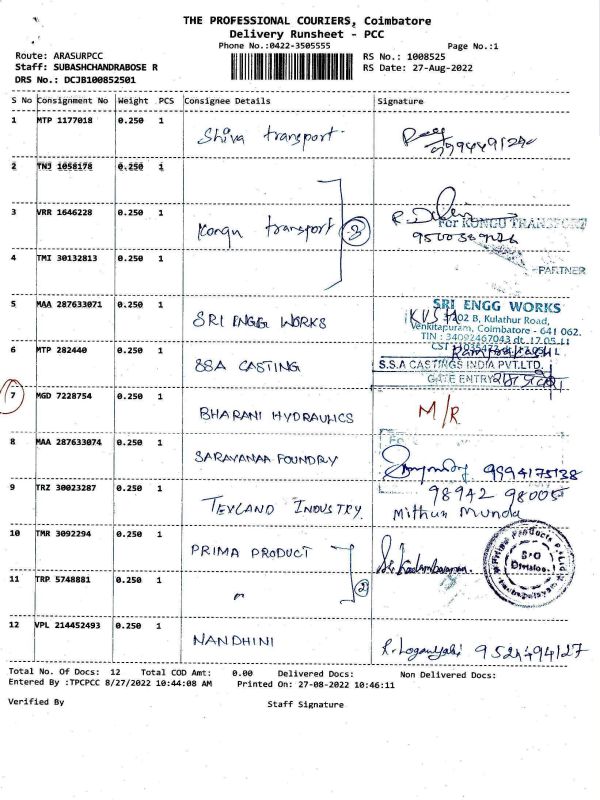 THE PROFESSIONAL COURIERS, Coimbatore
Delivery Runsheet - PCC
Phone No.:0422-3505555
Page No.:1
Route: ARASURPCC
RS No.: 1008525
Staff: SUBASHCHANDRABOSE R
RS Date: 27-Aug-2022
DRS No.: DCJB100852501
S No Consignment No Weight PCS Consignee Details Signature
1 MTP 1177018 0.250 1 Shiva transport.
2 TNJ 1056178 0.250 1
3 VRR 1646228 0.250 1 Kongu transport 3
For KONGU TRANSPORT
4 TMI 30132813 0.250 1
PARTNER
5 MAA 287633071 0.250 1 SRI ENGG WORKS
SRI ENGG WORKS
102 B, Kulathur Road,
Venkitapuram, Coimbatore - 641 062.
TIN : 34092467043 dt. 17.05.11
6 MTP 282440 0.250 1 SSA CASTING
S.S.A CASTINGS INDIA PVT.LTD.
GATE ENTRY
7 MGD 7228754 0.250 1 BHARANI HYDRAULICS M/R
8 MAA 287633074 0.250 1 SARAVANAA FOUNDRY
9994175138
9 TRZ 30023287 0.250 1 TEVLAND INDUSTRY.
98942 98005
Mithun Munda
10 TMR 3092294 0.250 1 PRIMA PRODUCT
11 TRP 5748881 0.250 1 " 2
Prime Products P.Ltd
SPO
Division
12 VPL 214452493 0.250 1 NANDHINI
Total No. Of Docs: 12 Total COD Amt: 0.00 Delivered Docs: Non Delivered Docs:
Entered By :TPCPCC 8/27/2022 10:44:08 AM Printed On: 27-08-2022 10:46:11
Verified By Staff Signature